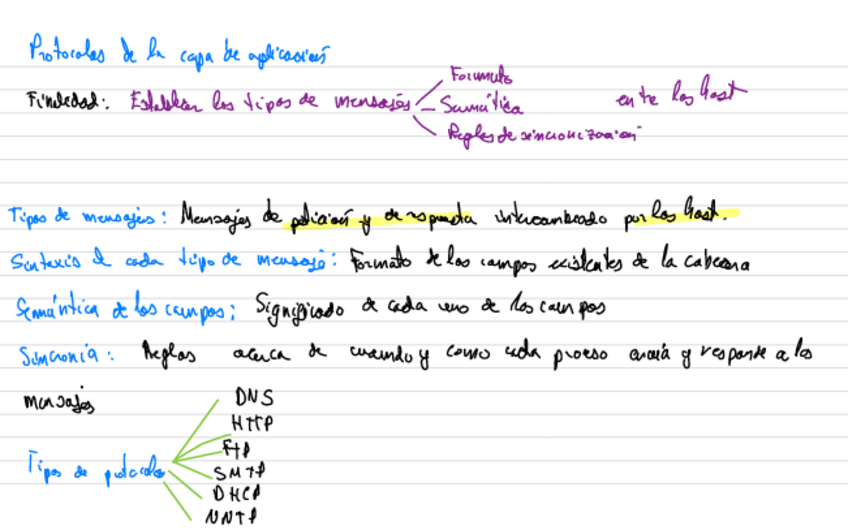 Protocolos de la capa de aplicación
Formato
Finalidad: Establecer los tipos de mensajes Semántica ente los host
Reglas de sincronización
Tipos de mensajes: Mensajes de petición y de respuesta intercambiado por los host.
Sintaxis de cada tipo de mensaje: Formato de los campos existentes de la cabecera
Semántica de los campos: Significado de cada uno de los campos
Sincronía: Reglas acerca de cuando y como cada proceso envía y responde a los
mensajes
DNS
HTTP
FTP
Tipos de protocolos
SMTP
DHCP
NNTP